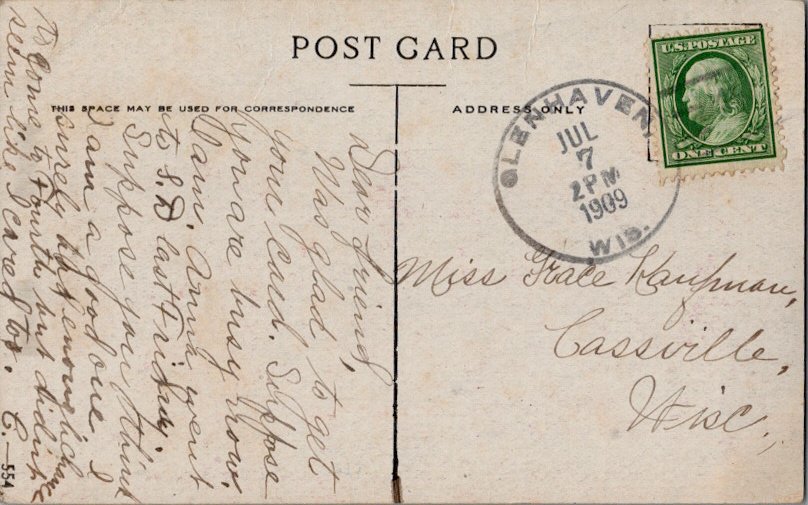 POST CARD
THIS SPACE MAY BE USED FOR CORRESPONDENCE
ADDRESS ONLY
U.S. POSTAGE
ONE CENT
GLENHAVEN,
JUL
7
2 PM
1909
WIS.
Miss Grace Kaufman,
Cassville,
Wisc.,
Dear friend,
Was glad to get
your card. Suppose
you are busy now.
Anna went
to S.D last Friday.
Suppose you think
I am a good one. I
surely had enough chance
to come to Fourth but didn't
seem like I cared to. C.
554